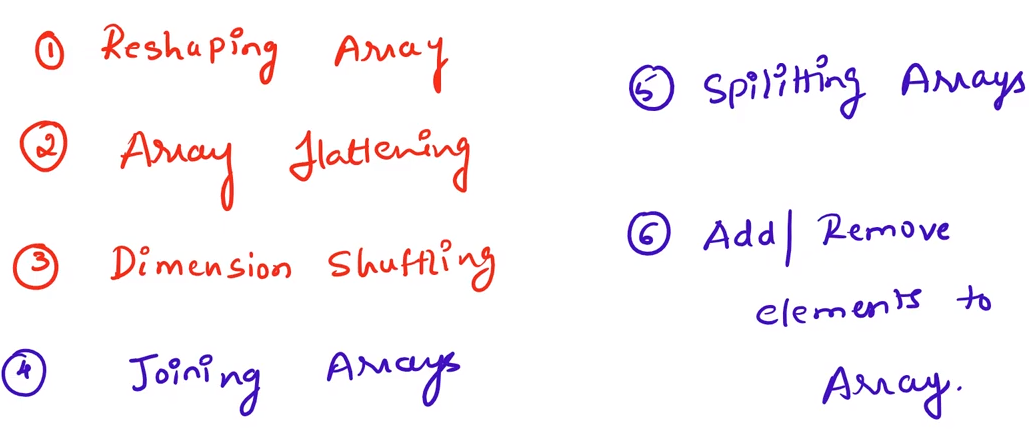 ① Reshaping Array
② Array flattening
③ Dimension Shuffling
④ Joining Arrays
⑤ Spilitting Arrays
⑥ Add/Remove
elements to
Array.